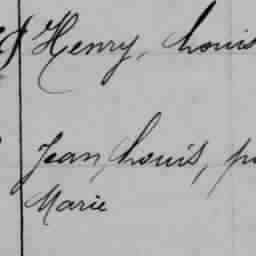 Henry, Louis
Jean, Louis,
Marie